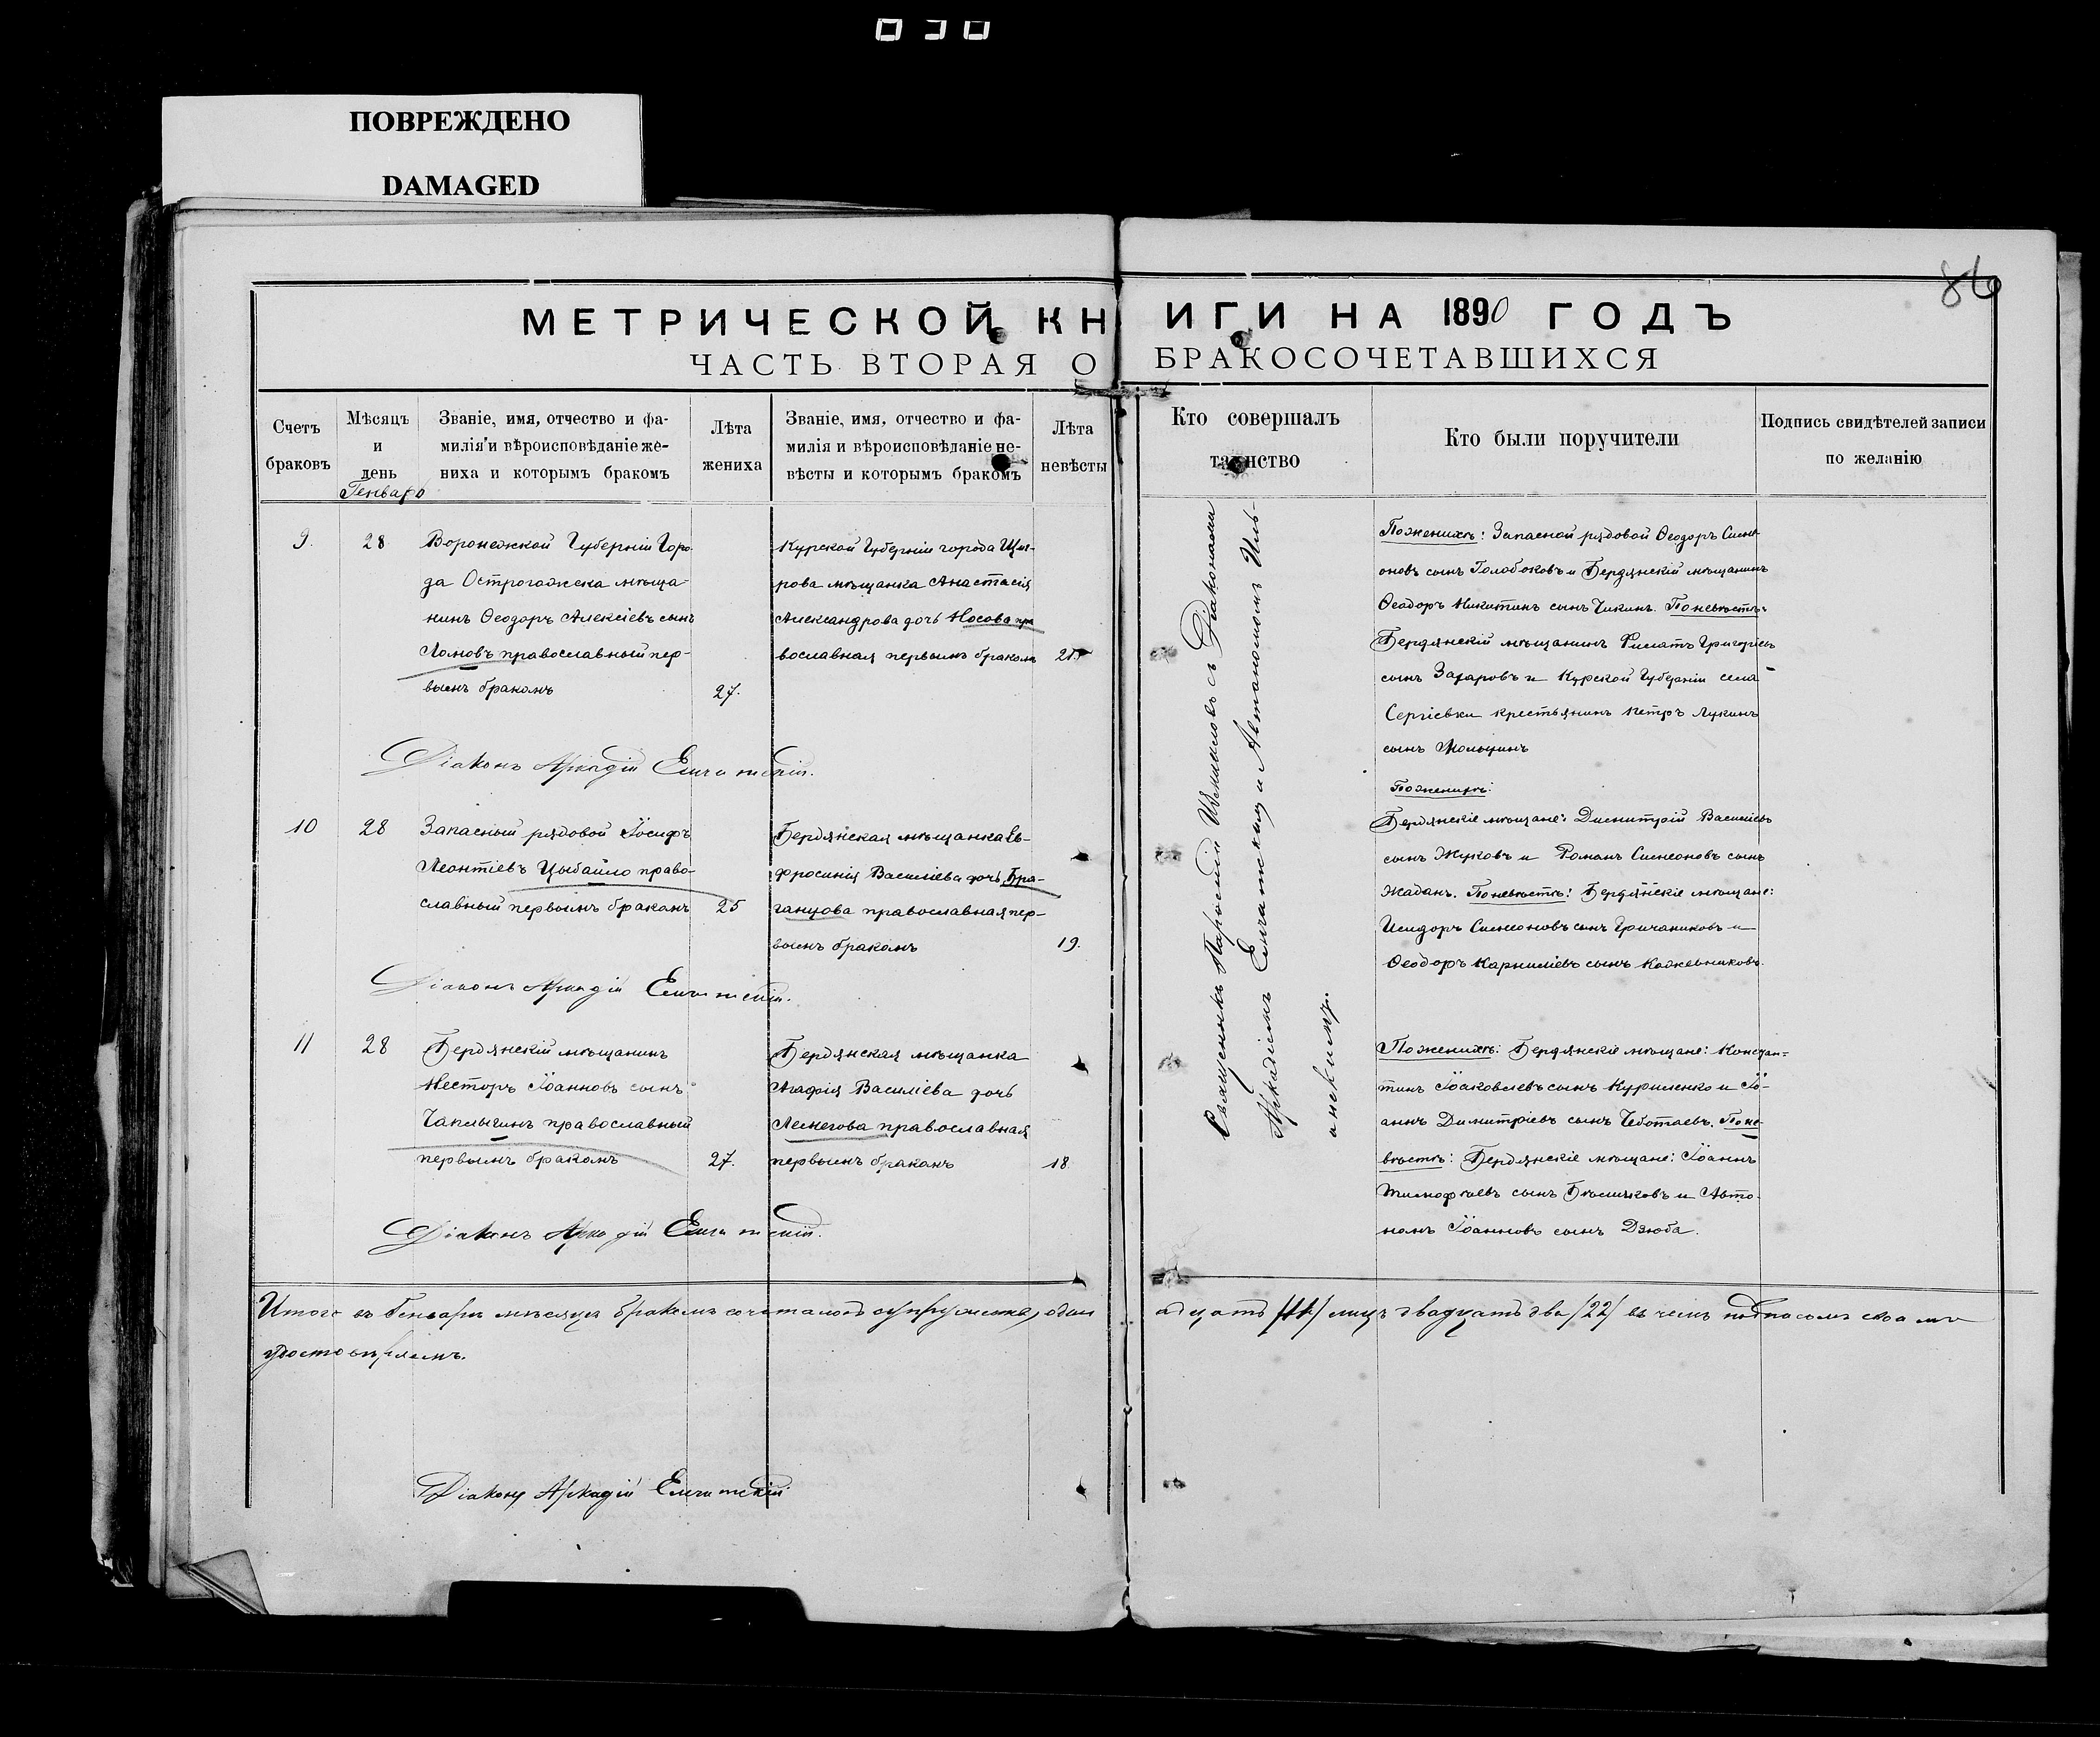 030
ПОВРЕЖДЕНО
DAMAGED
86
МЕТРИЧЕСКОЙ КНИГИ НА 1890 ГОДЪ
ЧАСТЬ ВТОРАЯ О БРАКОСОЧЕТАВШИХСЯ
Счетъ браковъ
Мѣсяцъ и день
Званіе, имя, отчество и фа-
милія и вѣроисповѣданіе же-
ниха и которымъ бракомъ
Лѣта жениха
Званіе, имя, отчество и фа-
милія и вѣроисповѣданіе не-
вѣсты и которымъ бракомъ
Лѣта невѣсты
Кто совершалъ
таинство
Кто были поручители
Подпись свидѣтелей записи
по желанію
Генварь
9.
28
Воронежской Губерніи Горо-
да Острогожска мѣща-
нинъ Ѳеодоръ Алексіевъ сынъ
Ломовъ православный пер-
вымъ бракомъ
27.
Курской Губерніи города Щиг-
рова мѣщанка Анастасія
Александрова дочь Носова пра
вославная первымъ бракомъ
Поженихѣ: Запасной рядовой Ѳеодоръ Симе-
оновъ сынъ Голобоковъ и Бердянскій мѣщанинъ
Ѳеодоръ Никитинъ сынъ Чикинъ. Поневѣстѣ:
Бердянскій мѣщанинъ Григоріевъ
сынъ Захаровъ и Курской Губерніи села
Сергіевки крестьянинъ Петръ Лукинъ
сынъ
Діаконъ Аркадій Елчитскій.
10
28
Запасный рядовой Іосифъ
Леонтіевъ Цыбайло право-
славный первымъ бракомъ
25
Бердянская мѣщанка Ев-
фросинія Василіева дочь Бра-
ганцова православная пер-
вымъ бракомъ
19.
Поженихѣ:
Бердянскіе мѣщане: Димитрій Василіевъ
сынъ Жуковъ и Романъ Симеоновъ сынъ
Жаданъ. Поневѣстѣ: Бердянскіе мѣщане:
Исидоръ Симеоновъ сынъ Гричаниковъ и
Ѳеодоръ Карниліевъ сынъ Кожевниковъ.
Діаконъ Аркадій Елчитскій.
11
28
Бердянскій мѣщанинъ
Несторъ Іоанновъ сынъ
Чаплыгинъ православный
первымъ бракомъ
27.
Бердянская мѣщанка
Агафія Василіева дочь
Лемегова православная
первымъ бракомъ
18.
Поженихѣ: Бердянскіе мѣщане: Констан-
тинъ Іоаковлевъ сынъ Куриленко и Іо-
аннъ Димитріевъ сынъ Чеботаевъ. Поне-
вѣстѣ: Бердянскіе мѣщане: Іоаннъ
Тимофѣевъ сынъ и Авто-
номъ Іоанновъ сынъ Дзюба.
Діаконъ Аркадій Елчитскій.
Священникъ съ Діаконами
Аркадіемъ Елчитскимъ и Автономомъ Иль-
инскимъ.
Итого въ Генварѣ мѣсяцѣ бракомъ сочеталось супружествъ один адцать /11/ лицъ двадцать два /22/ въ чемъ подписомъ своимъ
удостовѣряемъ.
Діаконъ Аркадій Елчитскій